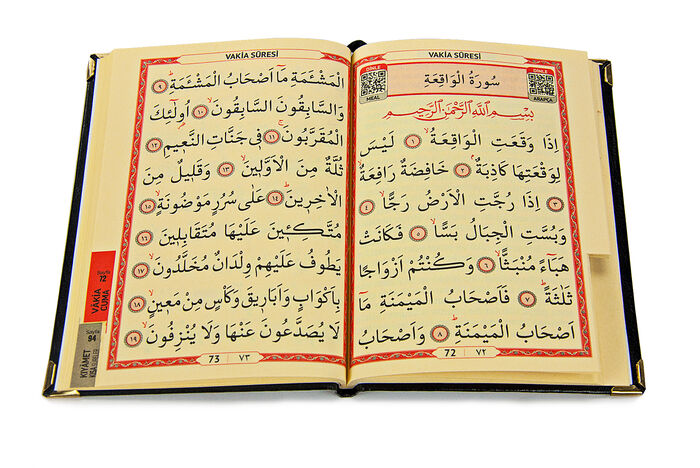 VAKİA SÛRESİ
DİNLE
سُورَةُ الْوَاقِعَةِ
DİNLE
MEAL
ARAPÇA
بِسْمِ اللّٰهِ الرَّحْمٰنِ الرَّحِيمِ
اِذَا وَقَعَتِ الْوَاقِعَةُۙ ﴿١﴾ لَيْسَ
لِوَقْعَتِهَا كَاذِبَةٌۢ ﴿٢﴾ خَافِضَةٌ رَافِعَةٌۙ
﴿٣﴾ اِذَا رُجَّتِ الْاَرْضُ رَجًّاۙ ﴿٤﴾
وَبُسَّتِ الْجِبَالُ بَسًّاۙ ﴿٥﴾ فَكَانَتْ
هَبَٓاءً مُنْبَثًّاۙ ﴿٦﴾ وَكُنْتُمْ اَزْوَاجًا
ثَلٰثَةًۜ ﴿٧﴾ فَاَصْحَابُ الْمَيْمَنَةِ مَٓا
اَصْحَابُ الْمَيْمَنَةِۜ ﴿٨﴾ وَاَصْحَابُ
72 ٧٢
VAKİA SÛRESİ
الْمَشْـَٔمَةِ مَٓا اَصْحَابُ الْمَشْـَٔمَةِۜ ﴿٩﴾
وَالسَّابِقُونَ السَّابِقُونَۙ ﴿١٠﴾ اُو۬لٰٓئِكَ
الْمُقَرَّبُونَۚ ﴿١١﴾ فِي جَنَّاتِ النَّعِيمِ ﴿١٢﴾
ثُلَّةٌ مِنَ الْاَوَّلِينَۙ ﴿١٣﴾ وَقَلِيلٌ مِنَ
الْاٰخِرِينَۜ ﴿١٤﴾ عَلٰى سُرُرٍ مَوْضُونَةٍۙ ﴿١٥﴾
مُتَّكِـِٔينَ عَلَيْهَا مُتَقَابِلِينَ ﴿١٦﴾
يَطُوفُ عَلَيْهِمْ وِلْدَانٌ مُخَلَّدُونَۙ ﴿١٧﴾
بِاَكْوَابٍ وَاَبَارِيقَ وَكَأْسٍ مِنْ مَعِينٍۙ ﴿١٨﴾
لَا يُصَدَّعُونَ عَنْهَا وَلَا يُنْزِفُونَۙ ﴿١٩﴾
73 ٧٣
Sayfa
72
VAKİA
CUMA
Sayfa
94
KIYAMET
KISA SURELER